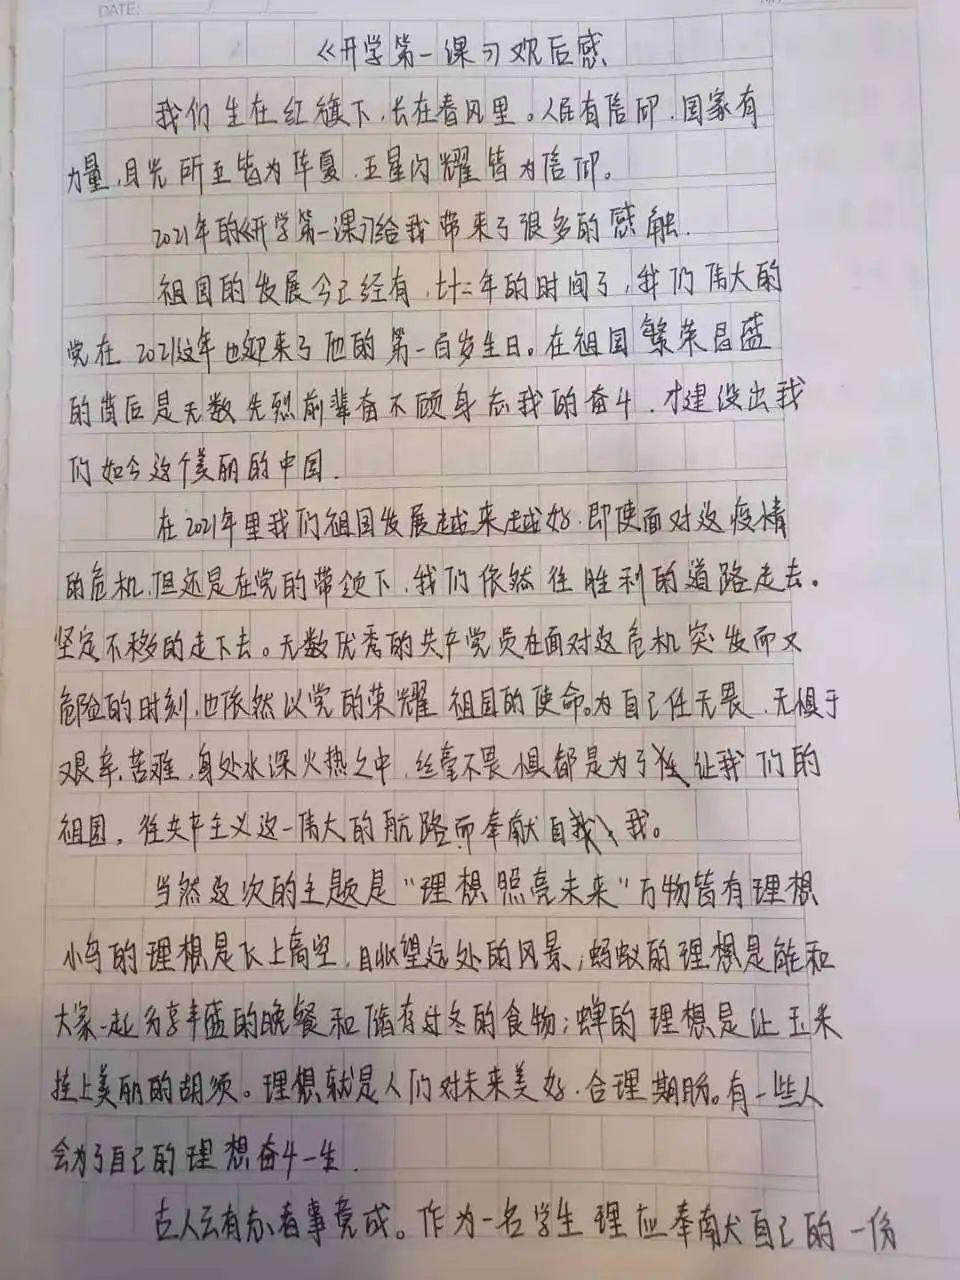 DATE:
《开学第一课》观后感
我们生在红旗下,长在春风里。人民有信仰.国家有
力量,目光所至皆为华夏,五星闪耀皆为信仰。
2021年的《开学第一课》给我带来了很多的感触.
祖国的发展今已经有,廿二年的时间了,我们伟大的
党在2021这年也迎来了他的第一百岁生日。在祖国繁荣昌盛
的背后是无数先烈前辈奋不顾身忘我的奋斗.才建设出我
们如今这个美丽的中国.
在2021年里我们祖国发展越来越好.即使面对这疫情
的危机,但还是在党的带领下,我们依然往胜利的道路走去。
坚定不移的走下去。无数优秀的共产党员在面对这危机突发而又
危险的时刻,也依然以党的荣耀 祖国的使命。为自己任无畏.无惧于
艰辛,苦难,身处水深火热之中,丝毫不畏惧都是为了让我们的
祖国,往共产主义这一伟大的航路而奉献自我。
当然这次的主题是“理想照亮未来”万物皆有理想
小鸟的理想是飞上高空,目眺望远处的风景;蚂蚁的理想是能和
大家一起分享丰盛的晚餐和储存过冬的食物;蝉的理想是让玉米
挂上美丽的胡须。理想就是人们对未来美好.合理期盼。有一些人
会为了自己的理想奋斗一生.
古人云有志者事竟成。作为一名学生理应奉献自己的一份